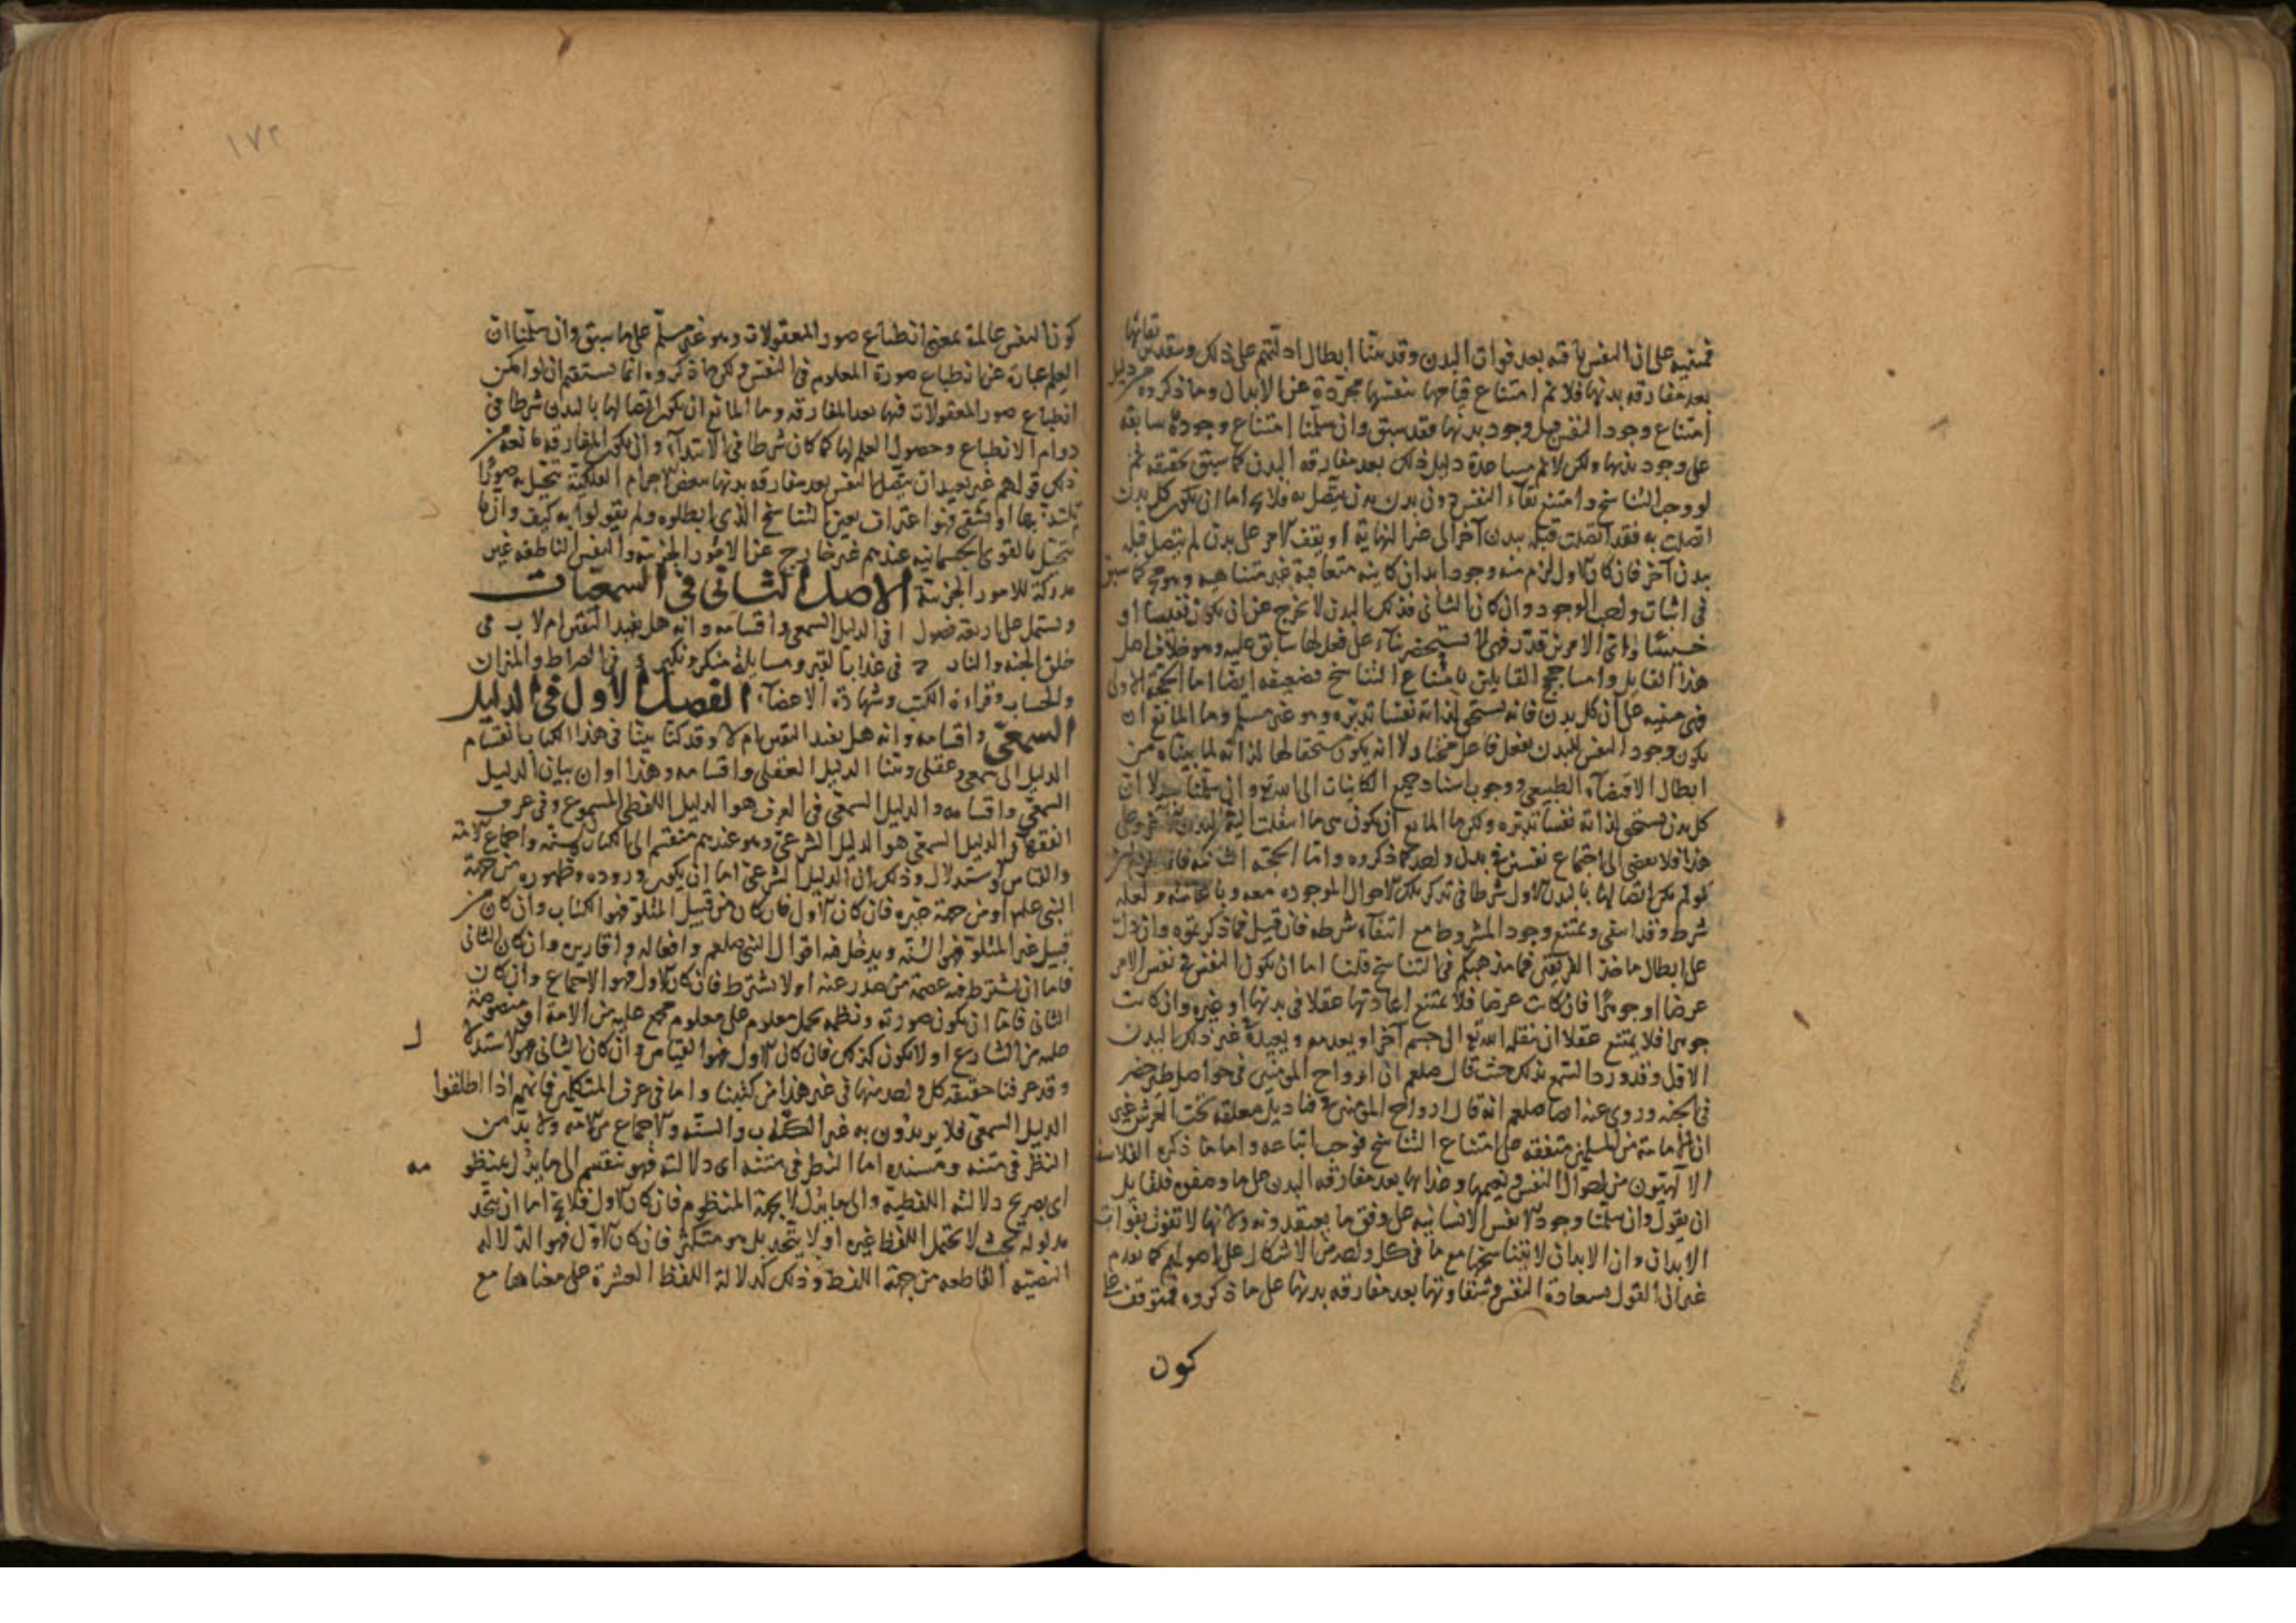 فمبنية على ان النفس باقية بعد فوات البدن وقد بينا ابطال ادلتهم على ذلك وبتقدير بقائها
بعد مفارقة بدنها فلا نم امتناع قيامها بنفسها مجردة عن الابدان وما ذكروه من دليل
امتناع وجود النفس قبل وجود بدنها فقد سبق وان سلمنا امتناع وجودها سابقة
على وجود بدنها ولكن لا نم مساعدة دليل ذلك بعد مفارقة البدن كما سبق تحقيقه ثم
لو وجب التناسخ وامتنع بقاء النفس دون بدن تتصل به فلا يخ اما ان يكون كل بدن
اتصلت به فقد اتصلت قبله ببدن آخر الى غير النهاية او يقف الامر على بدن لم يتصل قبله
ببدن آخر فان كان الاول لزم منه وجود ابدان كاينة متعاقبة غير متناهية وهو مح كما سبق
في اثبات واجب الوجود وان كان الثاني فذلك البدن لا يخرج عن ان يكون نفيسا او
خسيسا واي الامرين قدر فهي لا تستحقه بناء على فعل لها سابق عليه وهو خلاف اصل
هذا القايل واما حجج القايلين بامتناع التناسخ فضعيفة ايضا اما الحجة الاولى
فهي مبنية على ان كل بدن فانه يستحق لذاته نفسا تدبره وهو غير مسلم وما المانع ان
يكون وجود النفس للبدن بفعل فاعل مختار لا انه يكون مستحقا لها لذاته لما بيناه من
ابطال الاقتضاء الطبيعي ووجوب اسناد جميع الكاينات الى الله تع وان سلمنا جدلا ان
كل بدن يستحق لذاته نفسا تدبره ولكن ما المانع ان يكون هي ما انتقلت اليه من البدن الآخر وعلى
هذا فلا يفضي الى اجتماع نفسين في بدن واحد كما ذكروه واما الحجة الثانية فانما يلزم ان
لو لم يكن اتصالها بالبدن الاول شرطا في تذكر تلك الاحوال الموجودة معه وبا ولعله
شرط وقد انتفى ويمتنع وجود المشروط مع انتفاء شرطه فان قيل فما ذكرتموه وان دل
على ابطال ماخذ الفريقين فما مذهبكم في التناسخ قلنا اما ان يكون النفس في نفس الامر
عرضا او جوهرا فان كانت عرضا فلا يمتنع اعادتها عقلا في بدنها او غيره وان كانت
جوهرا فلا يمتنع عقلا ان ينقله الله تع الى جسم آخر او يعدمه ويعيده في غير ذلك البدن
الاول وقد ورد السمع بذلك حيث قال صلعم ان ارواح المؤمنين في حواصل طير خضر
في الجنة وروي عنه ايضا صلعم انه قال ارواح المؤمنين في قناديل معلقة تحت العرش غير
ان الامة من المسلمين متفقة على امتناع التناسخ فوجب اتباعه واما ما ذكره الفلاسفة
الآلهيون من احوال النفس ونعيمها وعذابها بعد مفارقة البدن على ما وصفوه فلقايل
ان يقول وان سلمنا وجود الانفس الانسانية على وفق ما يعتقدونه وانها لا تفوت بفوات
الابدان وان الابدان لا تتناسخها مع ما في كل واحد من الاشكال على اصولهم كما تقدم
غير ان القول بسعادة النفس وشقاوتها بعد مفارقة بدنها على ما ذكروه فمتوقف على
كون
١٧٢
كون النفس عالمة بمعنى انطباع صور المعقولات وهو غير مسلم على ما سبق وان سلمنا ان
العلم عبارة عن انطباع صورة المعلوم في النفس ولكن ما ذكروه انما يستقيم ان لو امكن
انطباع صور المعقولات فيها بعد المفارقة وما المانع ان يكون اتصالها بالبدن شرطا في
دوام الانطباع وحصول العلم لها كما كان شرطا في الابتداء وان يكون المفارقة مانعة من
ذلك قولهم غير بعيد ان يتصل النفس بعد مفارقة بدنها ببعض الاجرام الفلكية تتخيل به صورا
تلتذ بها او تشقى فهو اعتراف بعين التناسخ الذي ابطلوه ولم يقولوا به كيف وان ما
يتخيل بالقوى الجسمانية عندهم غير خارج عن الامور الجزئية والنفس الناطقة غير
مدركة للامور الجزئية الاصل الثاني في السمعيات
ويشتمل على اربعة فصول ا في الدليل السمعي واقسامه وانه هل يفيد اليقين ام لا ب في
خلق الجنة والنار ج في عذاب القبر ومسايلة منكر ونكير د في الصراط والميزان
والحساب وقراءة الكتب وشهادة الاعضاء الفصل الاول في الدليل
السمعي واقسامه وانه هل يفيد اليقين ام لا وقد كنا بينا في هذا الكتاب انقسام
الدليل الى سمعي وعقلي وبينا الدليل العقلي واقسامه وهذا اوان بيان الدليل
السمعي واقسامه والدليل السمعي في العرف هو الدليل اللفظي المسموع وفي عرف
الفقهاء الدليل السمعي هو الدليل الشرعي وهو عندهم منقسم الى الكتاب والسنة واجماع الامة
والقياس والاستدلال وذلك ان الدليل الشرعي اما ان يكون وروده وظهوره من جهة
النبي علم او من جهة غيره فان كان الاول فان كان من قبيل المتلو فهو الكتاب وان كان من
قبيل غير المتلو فهو السنة ويدخل فيه اقوال النبي صلعم وافعاله واقاريره وان كان الثاني
فاما ان يشترط فيه عصمة من صدر عنه او لا يشترط فان كان الاول فهو الاجماع وان كان
الثاني فاما ان يكون صورته ونظمه بحمل معلوم على معلوم مجمع عليه من الامة او منصوصة
عليه من الشارع او لا يكون كذلك فان كان الاول فهو القياس وان كان الثاني فهو الاستدلا
ل
وقد عرفنا حقيقة كل واحد منها في غير هذا من كتبنا واما في عرف المتكلمين فانهم اذا اطلقوا
الدليل السمعي فلا يريدون به غير الكتاب والسنة والاجماع من الامة ولا بد من
النظر في متنه ومسنده اما النظر في متنه اي دلالته فهو ينقسم الى ما يدل بمنظو
مه
اي بصريح دلالته اللفظية والى ما يدل لا بجهة المنظوم فان كان الاول فلا يخ اما ان يتحد
مدلوله بحيث لا يحتمل اللفظ غيره او لا يتحد بل هو متكثر فان كان الاول فهو الدلالة
النصية القاطعة من جهة اللفظ وذلك كدلالة اللفظ العشرة على معناها مع